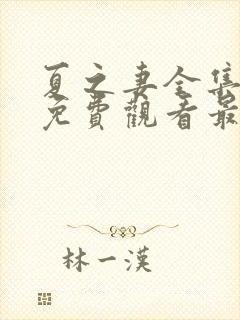 夏之妻全集
免費觀看最
林一漢